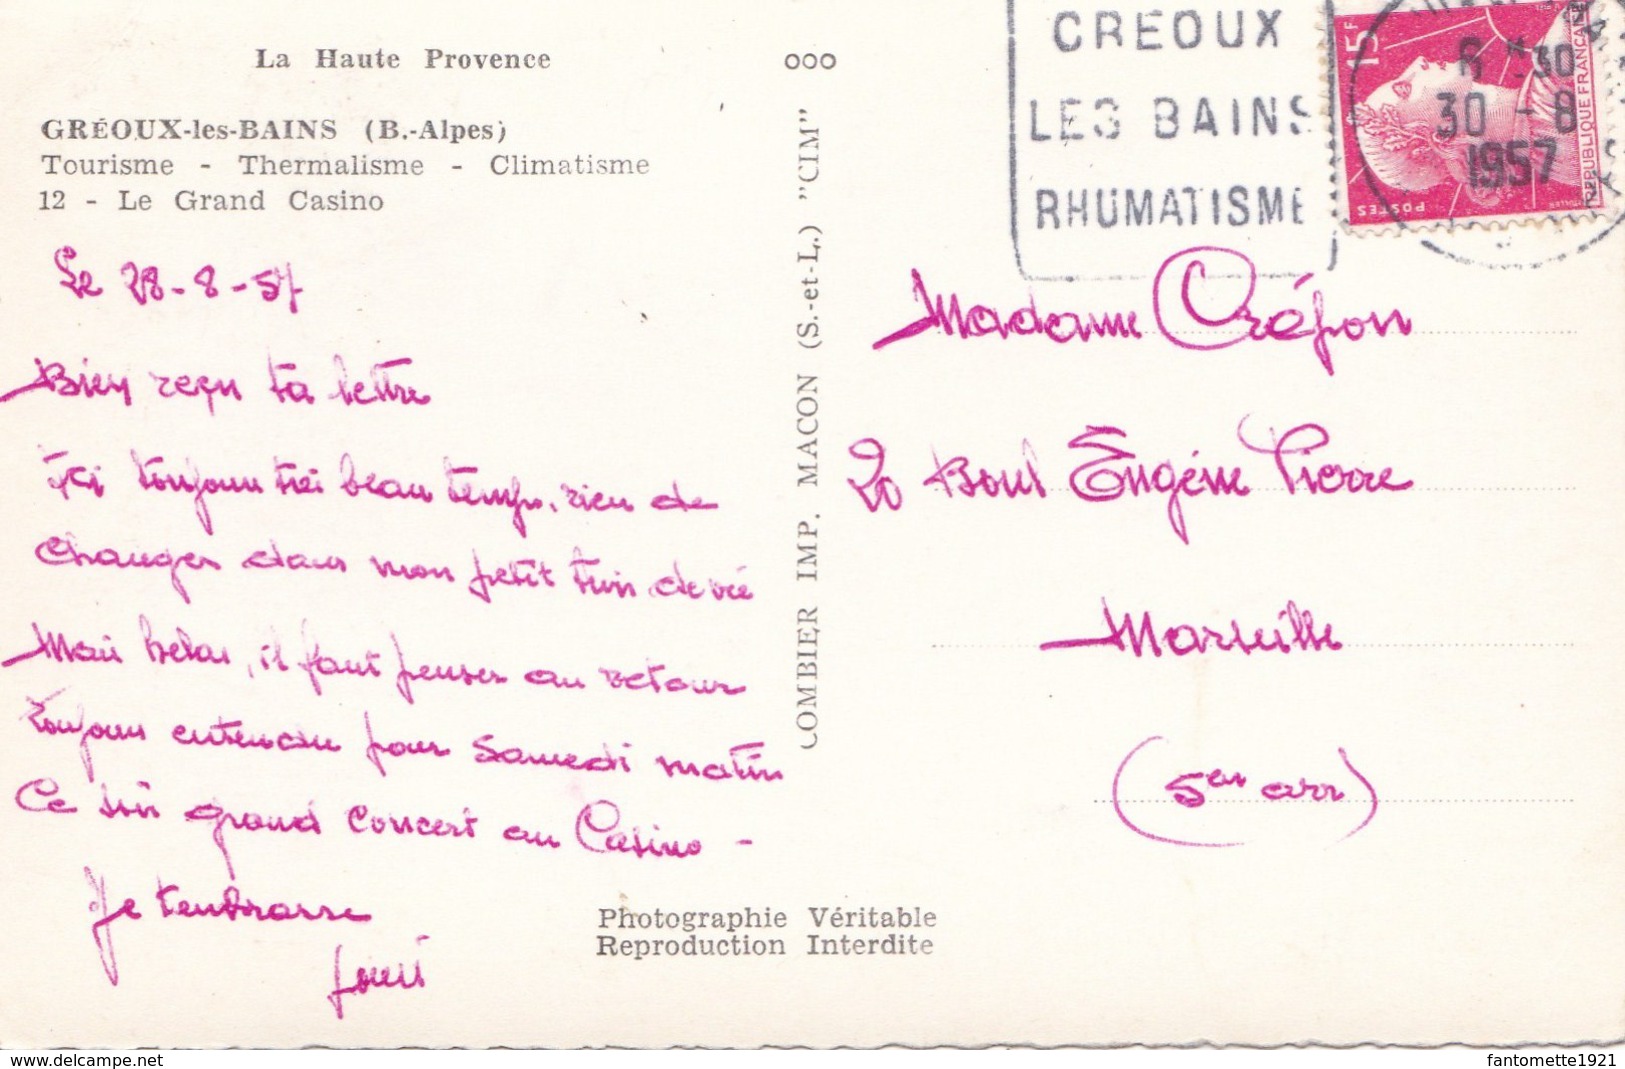 La Haute Provence
GRÉOUX-les-BAINS (B.-Alpes)
Tourisme - Thermalisme - Climatisme
12 - Le Grand Casino
Le 28-8-57
Bien reçu ta lettre
Ici toujours très beau temps, rien de
changer dans mon petit train de vie
Mais helas, il faut penser au retour
toujours entendu pour Samedi matin
Ce soir grand concert au Casino -
Je t'embrasse
Photographie Véritable
Reproduction Interdite
COMBIER IMP. MACON (S.-et-L.) "CIM"
GREOUX
LES BAINS
RHUMATISME
15F
POSTES
REPUBLIQUE FRANÇAISE
30 -8
1957
Madame Crépon
20 Boul Eugène Pierre
Marseille
(5em arr)
www.delcampe.net
fantomette1921